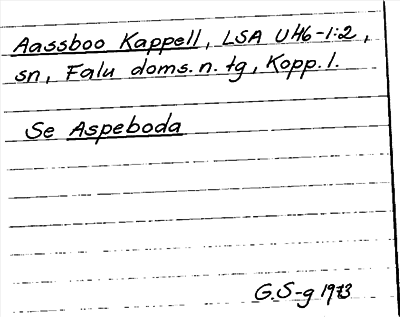 Aassboo Kappell, LSA UH6-1:2,
sn, Falu doms. n. tg, Kopp. l.
Se Aspeboda
G. S-g 1973